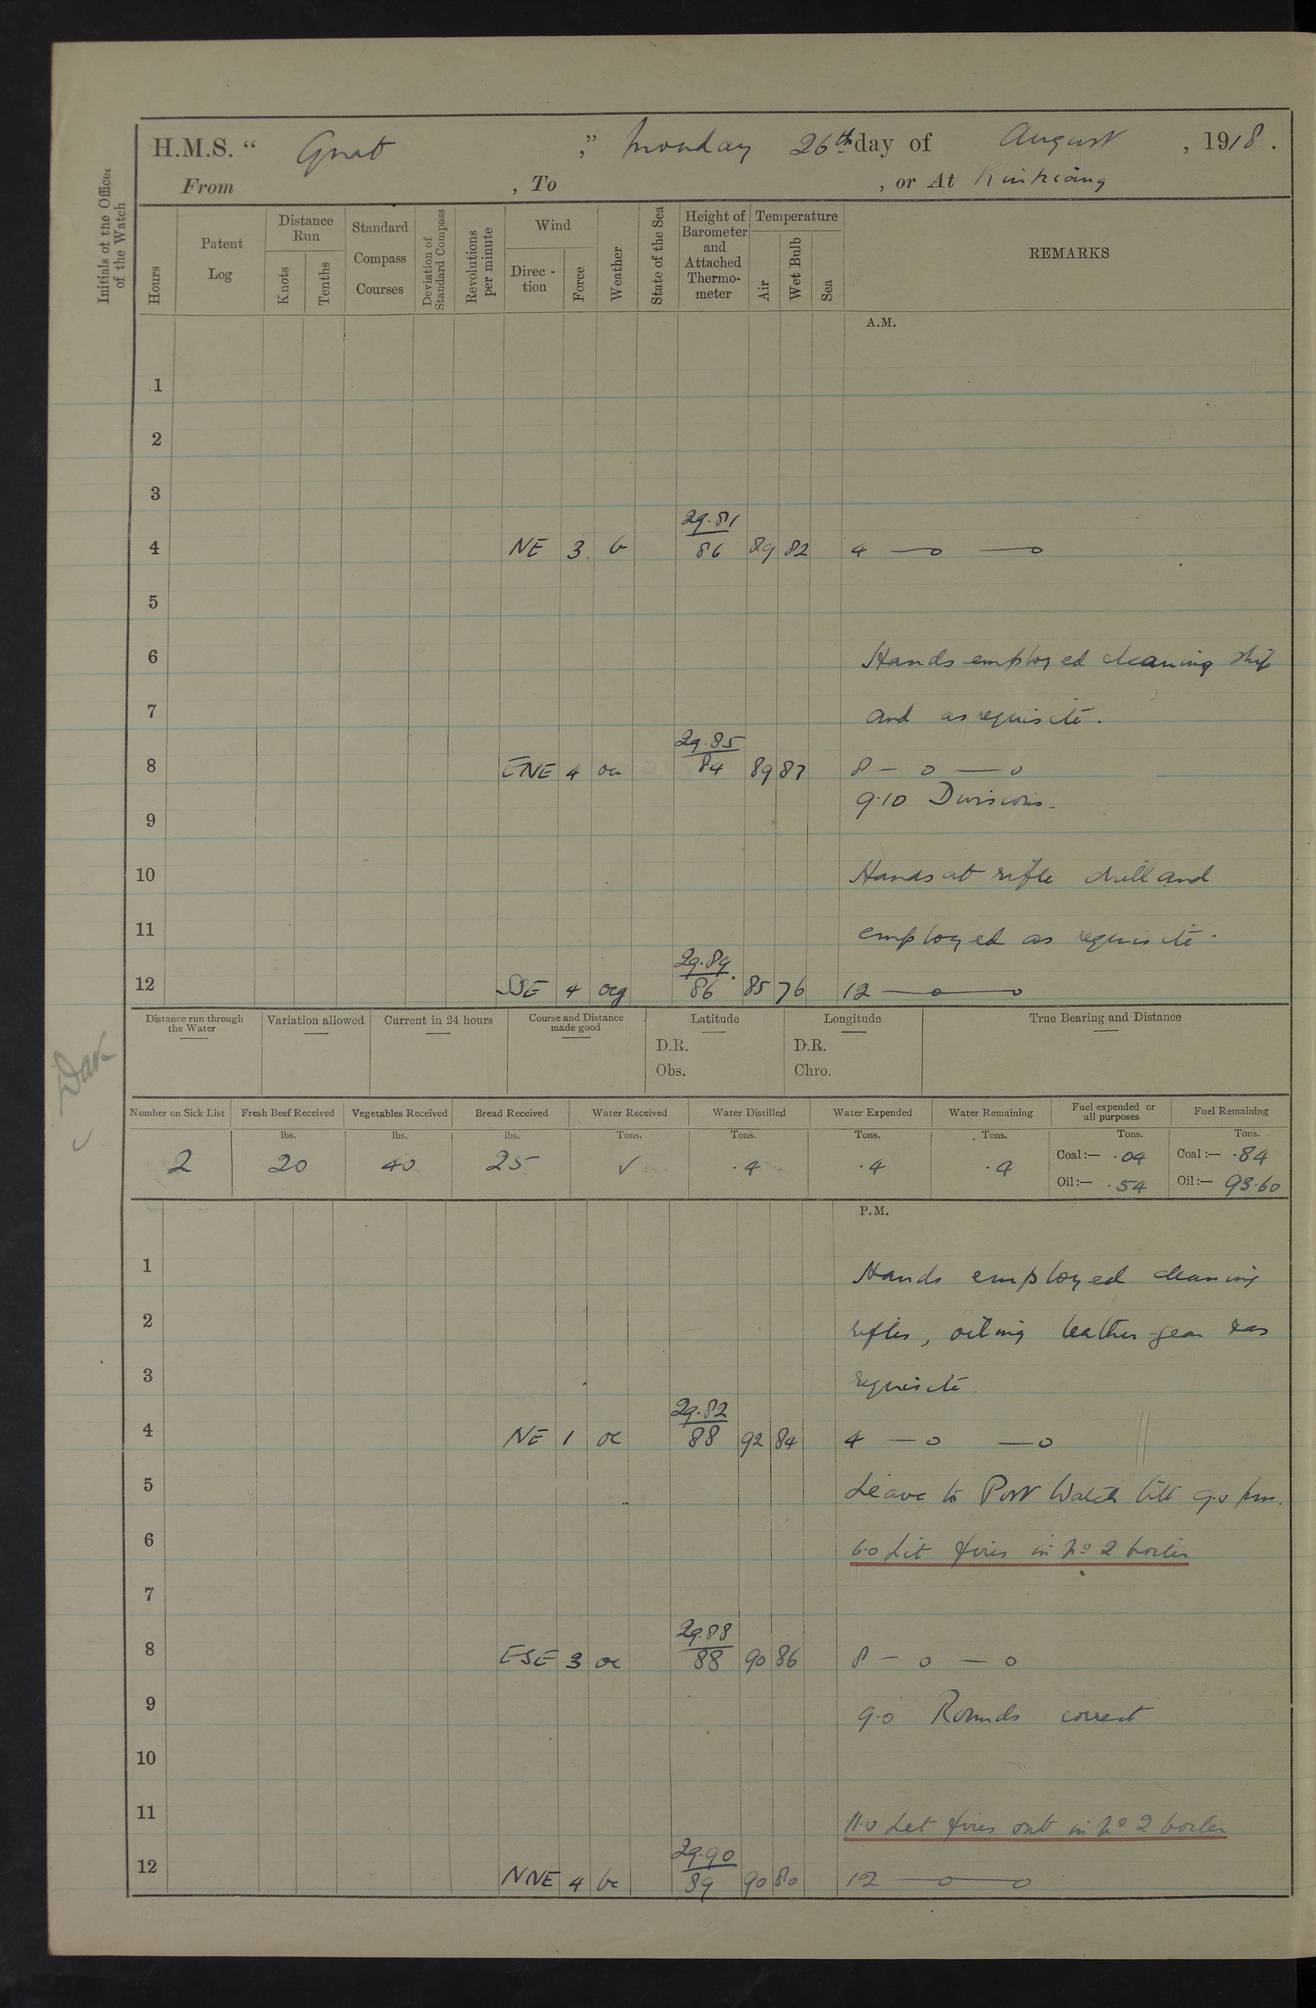 H.M.S. “ Gnat ,” Monday 26th day of August , 1918 .
From , To , or At Kiukiang
Initials of the Officer of the Watch
Hours
Patent Log
Distance Run
Knots
Tenths
Standard Compass Courses
Deviation of Standard Compass
Revolutions per minute
Wind
Direc-tion
Force
Weather
State of the Sea
Height of Barometer and Attached Thermo-meter
Temperature
Air
Wet Bulb
Sea
REMARKS
A.M.
1
2
3
29.81
4 NE 3 b 86 89 82 4 —o —o
5
6 Hands employed cleaning ship
7 and as requisite.
29.85
8 ENE 4 84 89 87 8 — o — o
9.10 Divisions.
9
10 Hands at rifle drill and
11 employed as requisite.
29.89
12 SSE 4 ocg 86 85 76 12 —o—o
Distance run through the Water
Variation allowed
Current in 24 hours
Course and Distance made good
Latitude
D.R.
Obs.
Longitude
D.R.
Chro.
True Bearing and Distance
Number on Sick List
Fresh Beef Received
Vegetables Received
Bread Received
Water Received
Water Distilled
Water Expended
Water Remaining
Fuel expended or all purposes
Fuel Remaining
lbs. lbs. lbs. Tons. Tons. Tons. Tons. Tons. Tons.
2 20 40 25 ✓ .4 .4 .4 Coal:— .04 Coal:— .84
Oil:— .54 Oil:— 93.60
P.M.
1 Hands employed cleaning
2 rifles, oiling leather gear & as
3 requisite.
29.82
4 NE 1 oc 88 92 84 4 —o —o
5 Leave to Port Watch till 9.0 pm.
6 6.0 Lit fires in No 2 boiler
7
29.88
8 ESE 3 oc 88 90 86 8 — o — o
9 9.0 Rounds correct
10
11 11.0 Let fires out in No 2 boiler
29.90
12 NNE 4 bc 89 90 80 12 —o—o